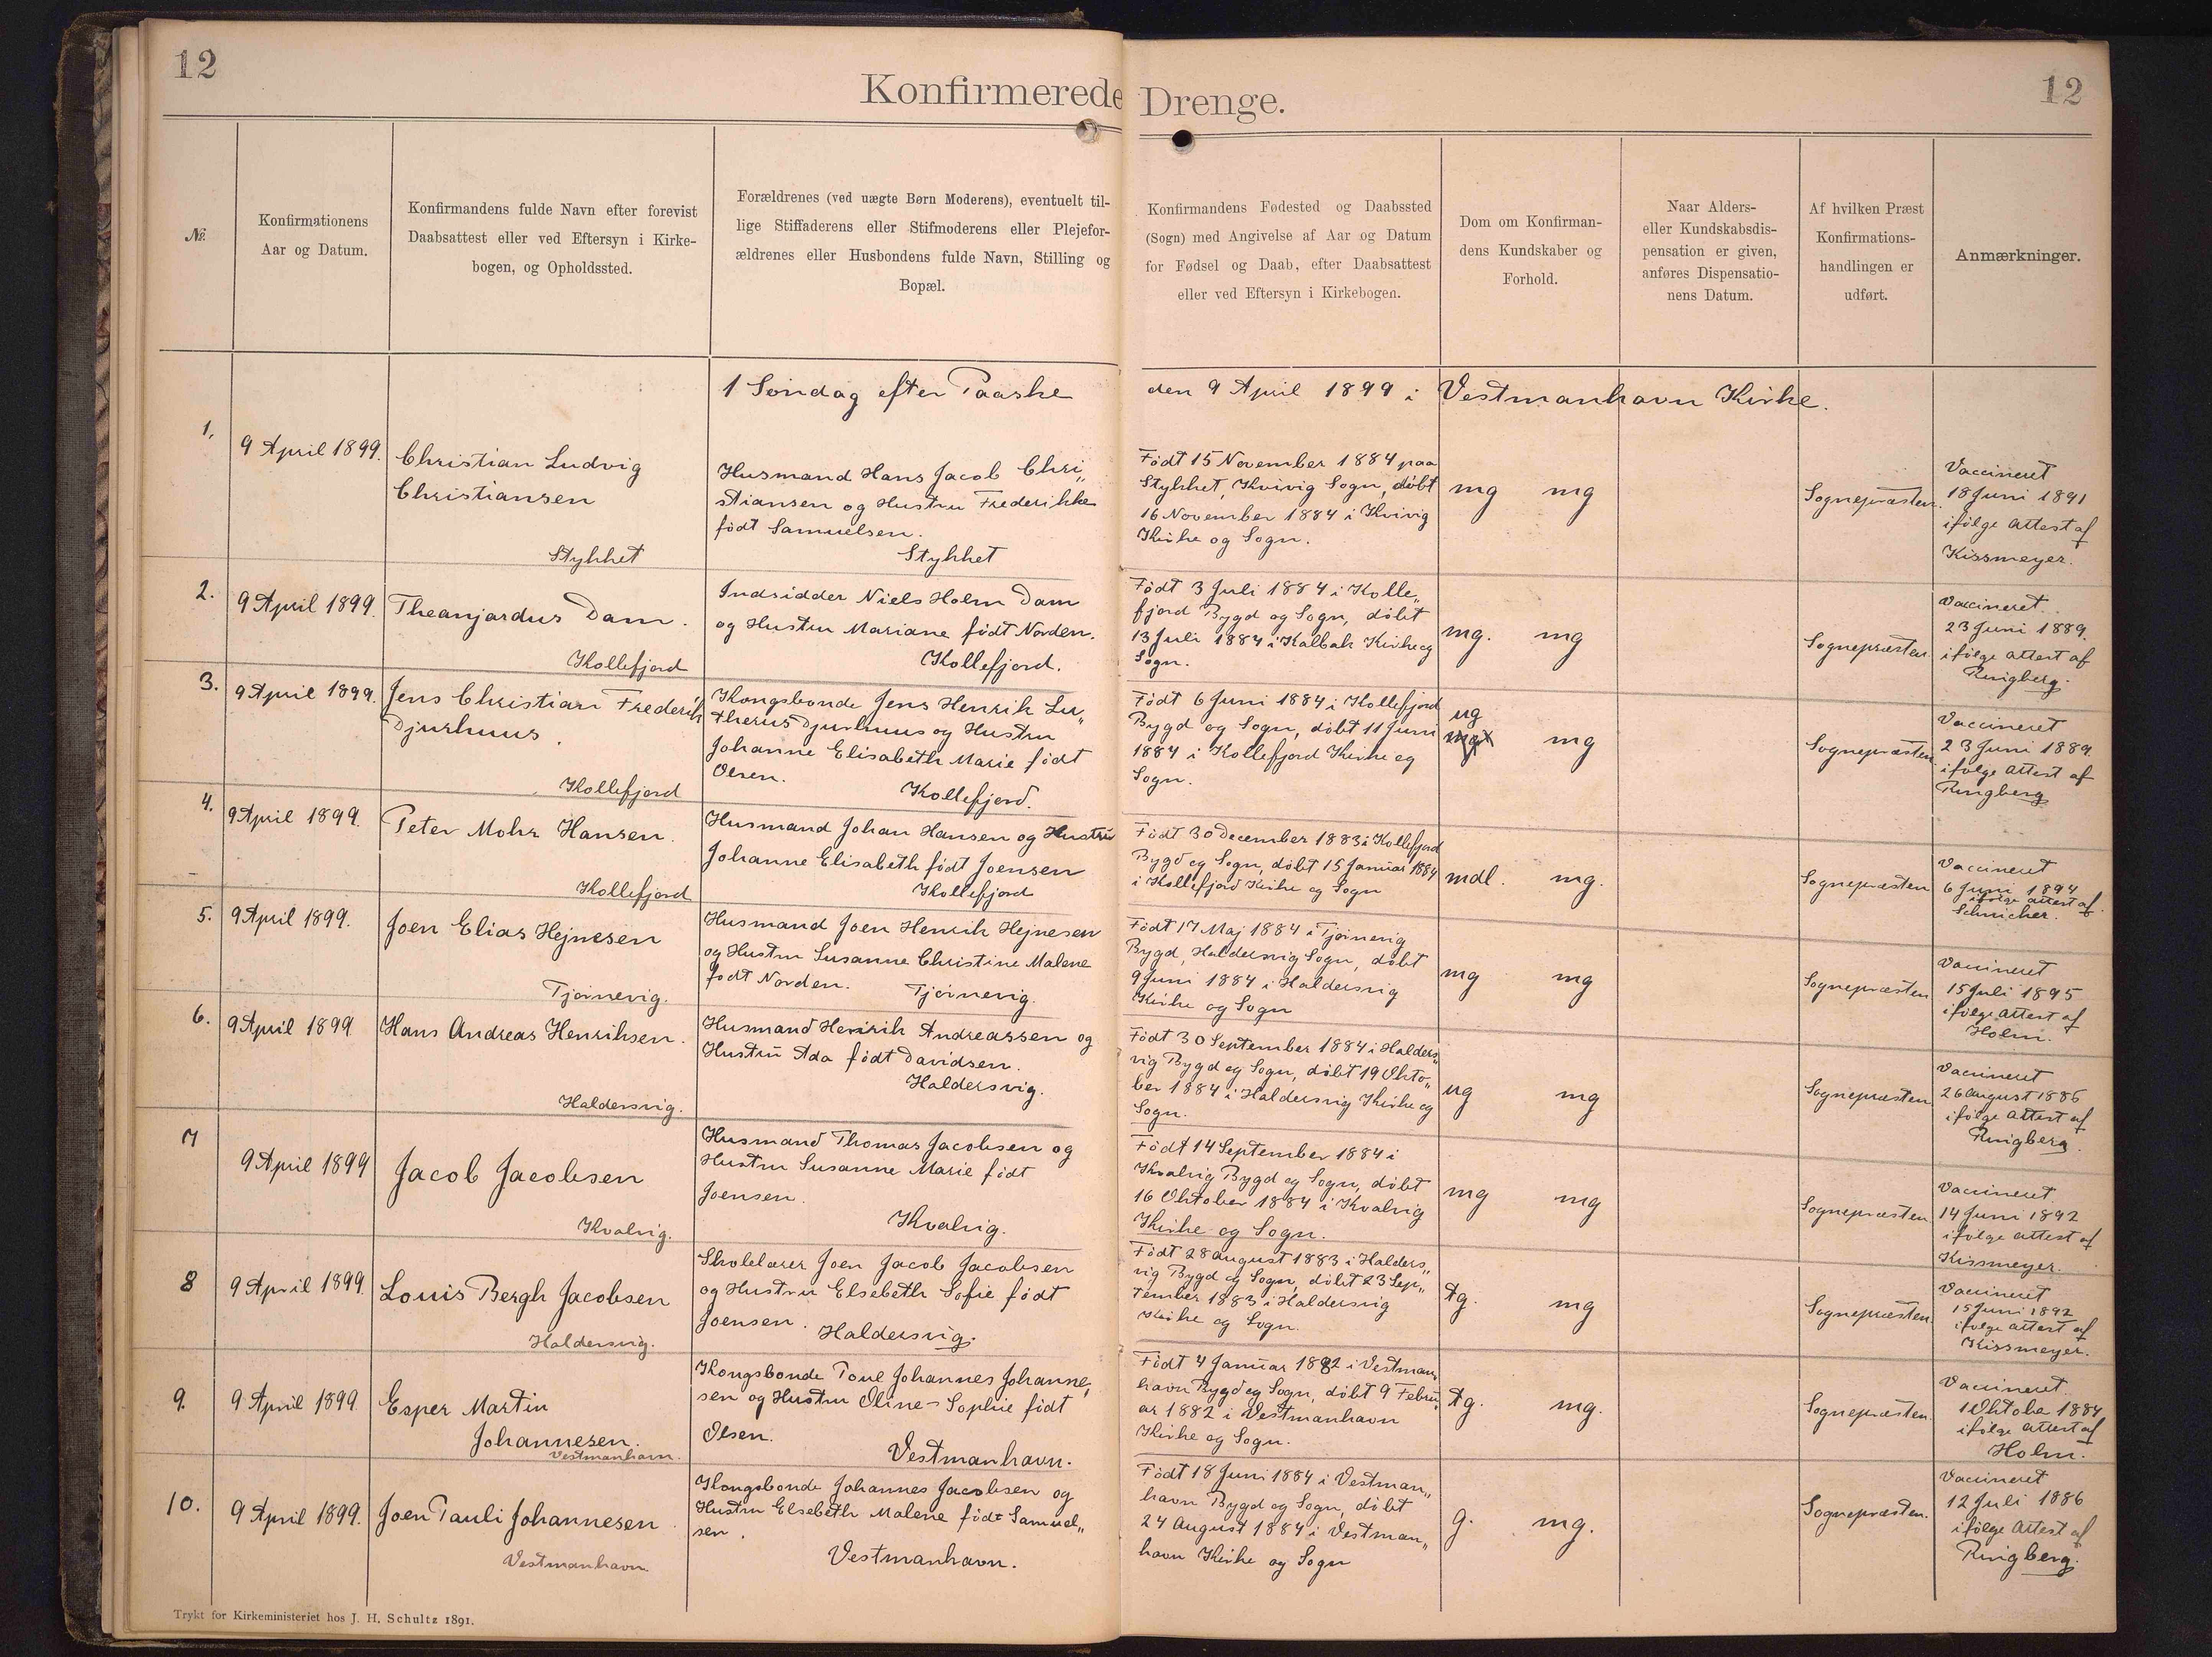 12
Konfirmerede Drenge.
12
№.
Konfirmationens
Aar og Datum.
Konfirmandens fulde Navn efter forevist
Daabsattest eller ved Eftersyn i Kirke-
bogen, og Opholdssted.
Forældrenes (ved uægte Børn Moderens), eventuelt til-
lige Stiffaderens eller Stifmoderens eller Plejefor-
ældrenes eller Husbondens fulde Navn, Stilling og
Bopæl.
Konfirmandens Fødested og Daabssted
(Sogn) med Angivelse af Aar og Datum
for Fødsel og Daab, efter Daabsattest
eller ved Eftersyn i Kirkebogen.
Dom om Konfirman-
dens Kundskaber og
Forhold.
Naar Alders-
eller Kundskabsdis-
pensation er given,
anføres Dispensatio-
nens Datum.
Af hvilken Præst
Konfirmations-
handlingen er
udført.
Anmærkninger.
1 Søndag efter Paaske den 9 April 1899 i Vestmanhavn Kirke.
1.
9 April 1899.
Christian Ludvig
Christiansen
Stykket
Husmand Hans Jacob Chri„
stiansen og Hustru Frederikke
født Samuelsen.
Stykket
Født 15 November 1884 paa
Stykket, Kvivig Sogn, døbt
16 November 1884 i Kvivig
Kirke og Sogn.
mg mg
Sognepræsten.
Vaccineret
18 Juni 1891
ifølge Attest af
Kissmeyer.
2.
9 April 1899.
Theanjardus Dam.
Kollefjord
Indsidder Niels Holm Dam
og Hustru Mariane født Norden.
Kollefjord.
Født 3 Juli 1884 i Kolle„
fjord Bygd og Sogn, døbt
13 Juli 1884 i Kalbak Kirke og
Sogn.
mg. mg
Sognepræsten.
Vaccineret.
23 Juni 1889.
ifølge Attest af
Ringberg.
3.
9 April 1899.
Jens Christian Frederik
Djurhuus.
Kollefjord
Kongsbonde Jens Henrik Lu„
therus Djurhuus og Hustru
Johanne Elisabeth Marie født
Olsen.
Kollefjord.
Født 6 Juni 1884 i Kollefjord
Bygd og Sogn, døbt 11 Juni
1884 i Kollefjord Kirke og
Sogn.
ug
mg
Sognepræsten.
Vaccineret
23 Juni 1889
ifølge Attest af
Ringberg
4.
9 April 1899.
Peter Mohr Hansen.
Kollefjord
Husmand Johan Hansen og Hustru
Johanne Elisabeth født Joensen
Kollefjord
Født 30 December 1883 i Kollefjord
Bygd og Sogn, døbt 15 Januar 1884
i Kollefjord Kirke og Sogn
mdl. mg.
Sognepræsten
Vaccineret
6 Juni 1894
ifølge Attest af
5.
9 April 1899.
Joen Elias Hejnesen
Tjørnevig.
Husmand Joen Henrik Hejnesen
og Hustru Susanne Christine Malene
født Norden.
Tjørnevig.
Født 17 Maj 1884 i Tjørnevig
Bygd, Haldersvig Sogn, døbt
9 Juni 1884 i Haldersvig
Kirke og Sogn
mg mg
Sognepræsten
Vaccineret
15 Juli 1895
ifølge Attest af
Holm.
6.
9 April 1899
Hans Andreas Henriksen.
Haldersvig.
Husmand Henrik Andreassen og
Hustru Ada født Davidsen.
Haldersvig.
Født 30 September 1884 i Halders„
vig Bygd og Sogn, døbt 19 Okto„
ber 1884 i Haldersvig Kirke og
Sogn.
ug mg
Sognepræsten
Vaccineret
26 August 1886
ifølge Attest af
Ringberg.
7
9 April 1899
Jacob Jacobsen
Kvalvig.
Husmand Thomas Jacobsen og
Hustru Susanne Marie født
Joensen.
Kvalvig.
Født 14 September 1884 i
Kvalvig Bygd og Sogn, døbt
16 Oktober 1884 i Kvalvig
Kirke og Sogn.
mg mg
Sognepræsten
Vaccineret
14 Juni 1892
ifølge Attest af
Kissmeyer.
8
9 April 1899.
Louis Bergh Jacobsen
Haldersvig.
Skolelærer Joen Jacob Jacobsen
og Hustru Elsebeth Sofie født
Joensen.
Haldersvig.
Født 28 August 1883 i Halders„
vig Bygd og Sogn, døbt 23 Sep„
tember 1883 i Haldersvig
Kirke og Sogn.
tg. mg
Sognepræsten.
Vaccineret
15 Juni 1892
ifølge Attest af
Kissmeyer.
9.
9 April 1899
Esper Martin
Johannesen.
Vestmanhavn.
Kongsbonde Poul Johannes Johanne„
sen og Hustru Oline-Sophie født
Olsen.
Vestmanhavn.
Født 4 Januar 1882 i Vestman„
havn Bygd og Sogn, døbt 9 Febru„
ar 1882 i Vestmanhavn
Kirke og Sogn.
tg. mg.
Sognepræsten.
Vaccineret.
1 Oktober 1884
ifølge Attest af
Holm.
10.
9 April 1899.
Joen Pauli Johannesen.
Vestmanhavn.
Kongsbonde Johannes Jacobsen og
Hustru Elsebeth Malene født Samuel„
sen.
Vestmanhavn.
Født 18 Juni 1884 i Vestman„
havn Bygd og Sogn, døbt
24 August 1884 i Vestman„
havn Kirke og Sogn
g. mg.
Sognepræsten.
Vaccineret
12 Juli 1886
ifølge Attest af
Ringberg.
Trykt for Kirkeministeriet hos J. H. Schultz 1891.